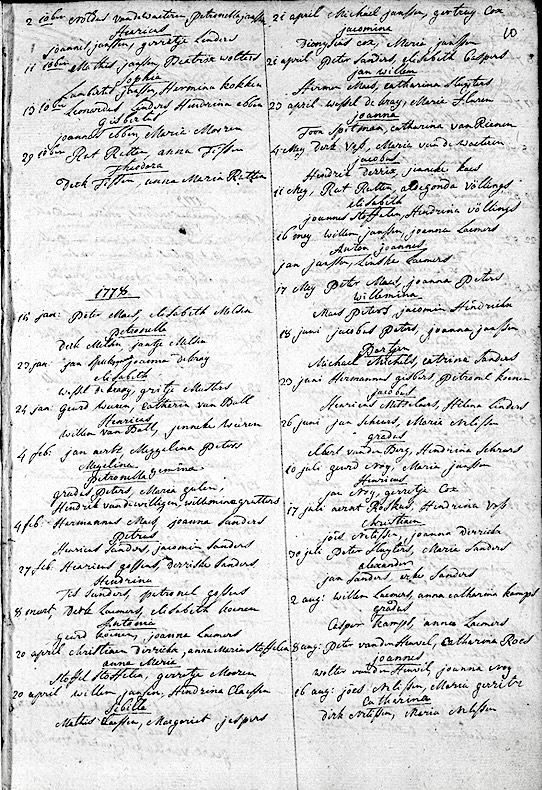 2 10ber Noldus van de waeteren, Petronella janssen
Henricus
joannes janssen, gerretje Linders
11 10ber Mathes janssen Beatrix wolters
Sophia
Lambertus janssen, Hermina kokken
13 10ber Leonardus Linders Hendrina ebben
Gisbertus
joannes ebben, Maria Moozen
29 10ber Rat Rutten anna Tissen
Theodora
Derk Tissen, anna Maria Rutten
1778
16 jan: Peter Maes, elisabeth Melsen
Petronella
Derk Melsen jantje Melsen
23 jan: jan joanna de bray
elisabeth
wessel de bray, gritje Mutters
24 jan: geurd koenen, Catharin van Ball
Henricus
willem van Ball, jenneke koenen
4 feb: jan aerts Meggelina Peters
Megelina
Petronella gemina
gradus Peters, Maria gulen,
Hendrik van de willigen, willemina grutters
4 feb: Hermannus Maes, joanna Sanders
Petrus
Henricus Sanders, jacomin Sanders
27 feb Henricus gossens, derriske Sanders,
Hendrina
Tis Sanders, petronel gossens
8 maert Derk Laemers, elisabeth koenen
Antonia
geurd koenen, joanna Laemers
20 april Christiaen dirrickx, anne Marie Stoffelen
anna Maria
Stoffel Stoffelen, gerretje Moozen
20 april willem jansen, Hindrina Claessen
Sibilla
Mathis Claessen, Margeriet jespers
10
21 april Michael janssen, gertruy Cox
jacomina
Dionysius cox, Maria janssen
21 april Peter Sanders, elisabeth Caspers
jan willem
Hermen Maes, catharina Sluyters
23 april wessel de bray, Maria Floren
joanna
Toon Spitman, catharina van Rienen
4 Mey Derk Vos, Maria van de waeteren
jacobus
Hendrik derrix, janneke kaes
11 Mey, Rat Rutten, aldegonda völlings
elisabeth
joannes Stoffelen, Hindrina völlings
16 mey willem janssen, joanna Laemers
Anton joannes
jan janssen, Linske Laemers
17 Mey Peter Maes, joanna Peters
willemina
Maes Peters, jacomin Hindrickx
18 juni jacobus Peters, joanna janssen
Michael Michels, catrina Sanders
23 juni Hermannus gisbers, Petronel koenen
jacobus
Henricus Mettelaers, Helena Linders
26 juni jan Scheers, Maria Nelissen
gradus
Albert van den Berg, Hendrina Scheers
10 juli geurd Noy, Maria janssen
Henricus
jan Noy, gerretje Cox
17 juli aerent Roskes, Hendrina Vos
Christiaen
joës Nelissen, joanna derrickx
30 juli Peter Sluyters, Maria Sanders
alexander
jan Sanders, erke Sanders
2 aug: willem Laemers, anna catharina kamps
gradus
Casper kamps, anna Laemers
8 aug: Peter van den Heuvel, Catharina Roes
joannes
wolter van den Heuvel, joanna Noy
16 aug: joës Nelissen, Maria gerrits
Catharina
Dirk Nelissen, Maria Nelissen